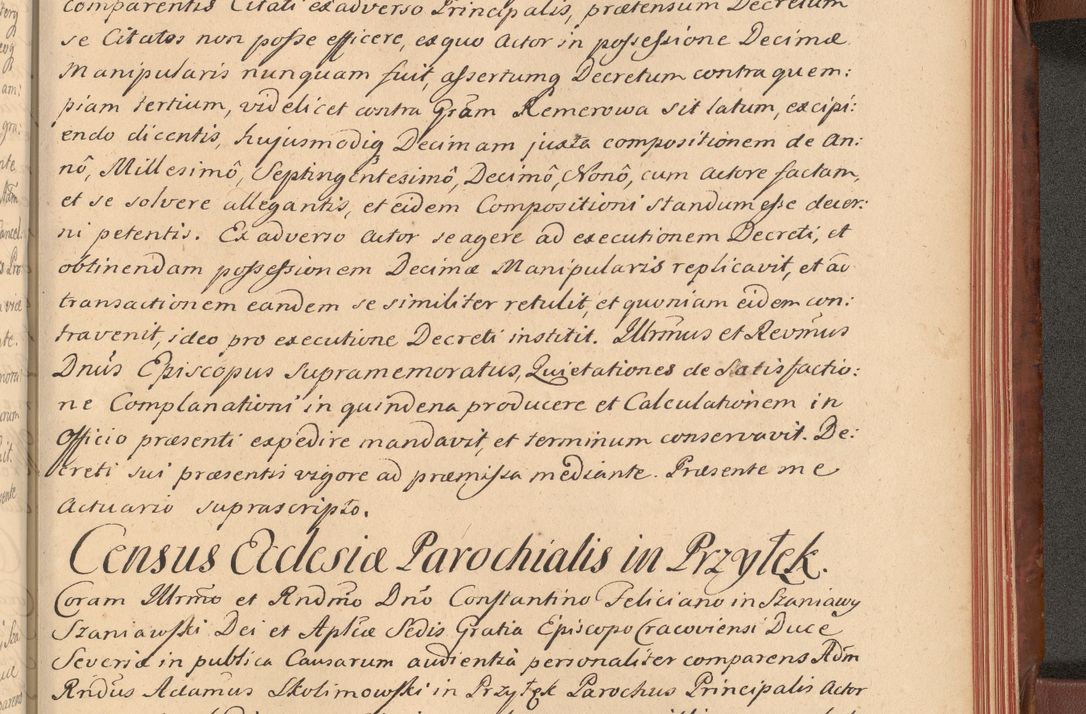 comparentis Citati exadverso Principalis, prætensum Decretum
se Citatos non posse efficere, exquo Actor in possessione Decimæ
Manipularis nunquam fuit, assertumq Decretum contra quem:
piam tertium, videlicet contra Gram Remerowa sit latum, excipi:
endo dicentis, hujusmodiq Decimam juxta compositionem de An:
nô, Millesimô, Septingentesimô, Decimô, Nonô, cum Actore factam,
et se solvere allegantis, et eidem Compositioni standum esse decer:
ni petentis. Exadverso Actor se agere ad executionem Decreti, et
obtinendam possessionem Decimæ Manipularis replicavit, et ad
transactionem eandem se similiter retulit, et quoniam eidem con:
travenit, ideo pro executione Decreti institit. Illrm̃us et Revm̃us
Dnũs Episcopus supramemoratus, Quietationes de Satisfactio:
ne Complanationi in quindena producere et Calculationem in
Officio præsenti expedire mandavit, et terminum conservavit. De:
creti sui præsentis vigore ad præmissa mediante. Præsente me
Actuario suprascripto.
Census Ecclesiæ Parochialis in Przyłęk.
Coram Illrm̃o et Rndm̃o Dnõ Constantino Feliciano in Szaniawy
Szaniawski Dei et Aplicæ Sedis Gratia Episcopo Cracoviensi Duce
Severiæ in publica Causarum audientia personaliter comparens Adm̃
Rndũs Adamus Skolimowski in Przyłęk Parochus Principalis Actor